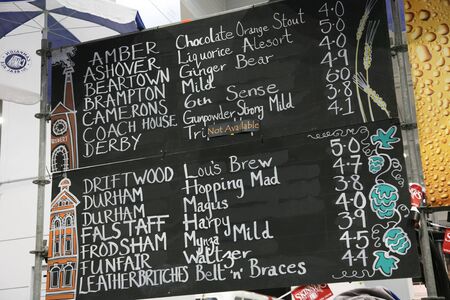 AMBER Chocolate Orange Stout 4.0
ASHOVER Liquorice Alesort 4.5
BEARTOWN Ginger Bear 4.0
BRAMPTON Mild 4.9
CAMERONS 6th Sense 60
COACH HOUSE Gunpowder Strong Mild 3.8
DERBY Not Available 4.1
DRIFTWOOD Lou's Brew 5.0
DURHAM Hopping Mad 4.7
DURHAM Magus 3.8
FALSTAFF Harpy 4.0
FRODSHAM Mild 3.9
FUNFAIR Waltzer 4.5
LEATHERBRITCHES Belt 'n' Braces 4.4